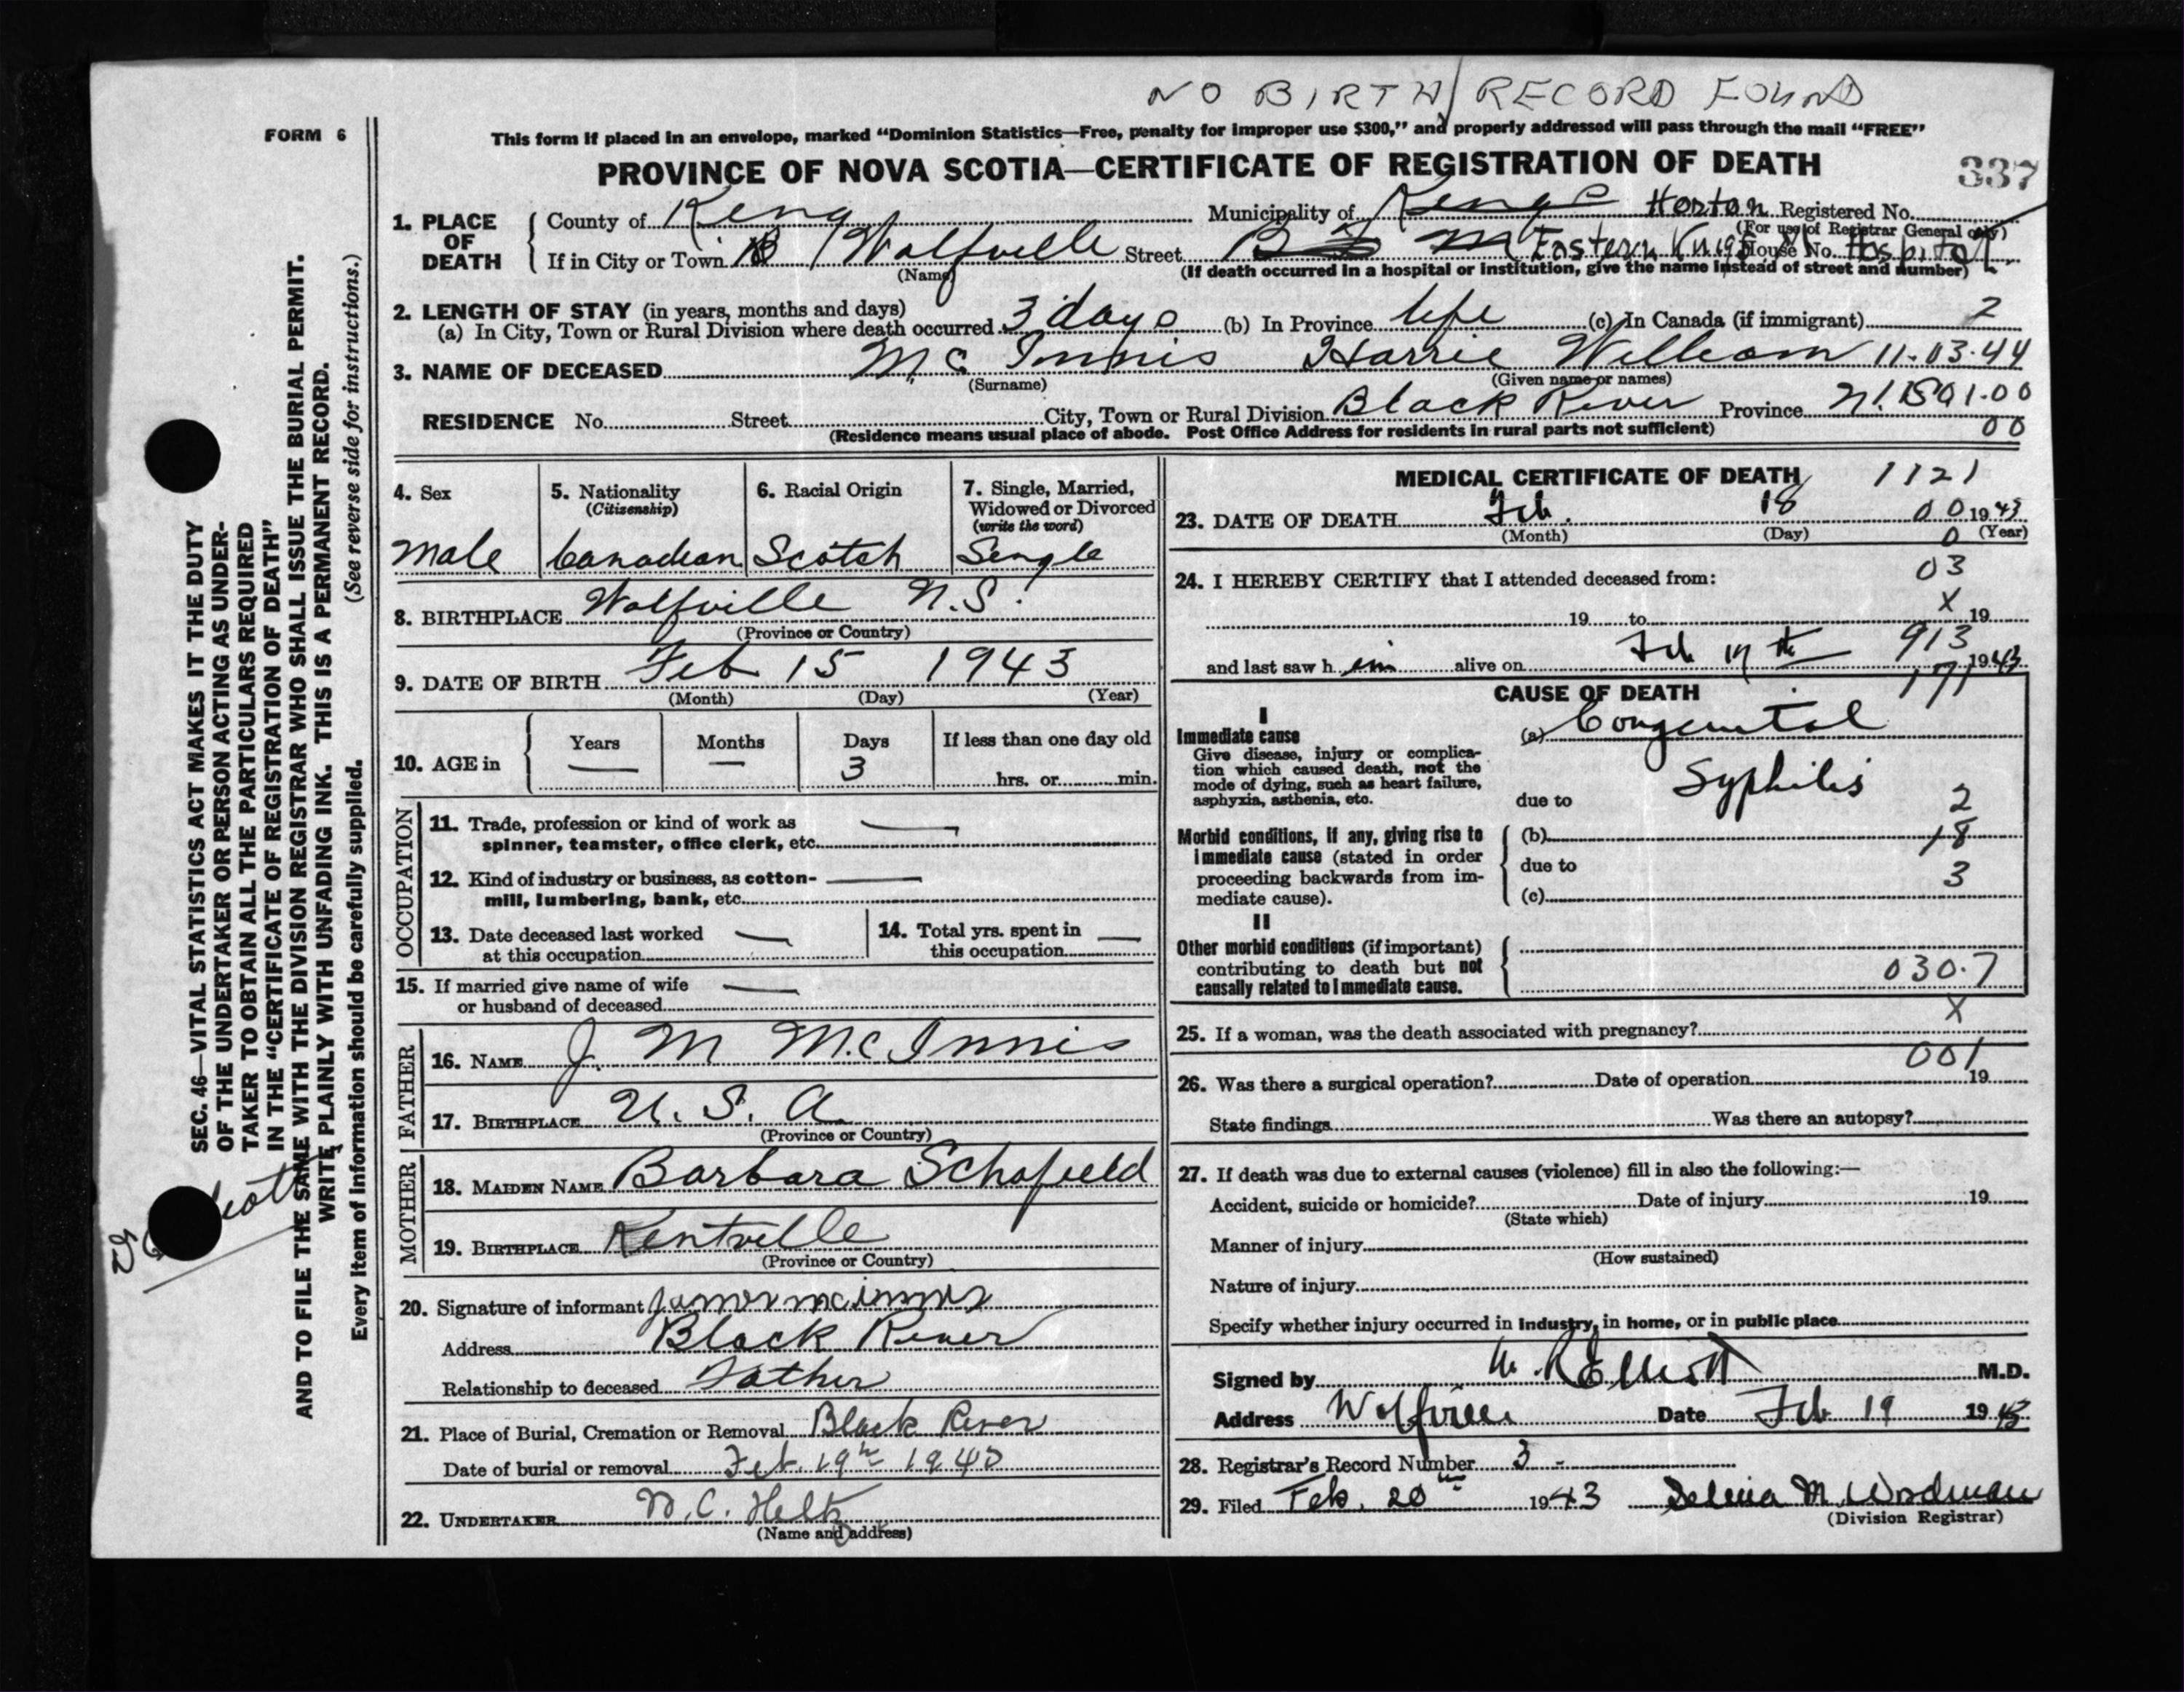 NO BIRTH RECORD FOUND
FORM 6
This form if placed in an envelope, marked “Dominion Statistics—Free, penalty for improper use $300,” and properly addressed will pass through the mail “FREE”
PROVINCE OF NOVA SCOTIA—CERTIFICATE OF REGISTRATION OF DEATH
337
1. PLACE OF DEATH
County of Kings Municipality of Kings Horton Registered No.
(For use of Registrar General only)
If in City or Town Wolfville Street Eastern Kings M House No. Hospital
(Name) (If death occurred in a hospital or institution, give the name instead of street and number)
2. LENGTH OF STAY (in years, months and days)
(a) In City, Town or Rural Division where death occurred 3 days (b) In Province life (c) In Canada (if immigrant) 2
3. NAME OF DECEASED McInnis Harrie William 11-03-44
(Surname) (Given name or names)
RESIDENCE No. Street City, Town or Rural Division Black River Province N.S. 01.00
(Residence means usual place of abode. Post Office Address for residents in rural parts not sufficient) 00
4. Sex 5. Nationality (Citizenship) 6. Racial Origin 7. Single, Married, Widowed or Divorced (write the word)
Male Canadian Scotch Single
8. BIRTHPLACE Wolfville N.S.
(Province or Country)
9. DATE OF BIRTH Feb 15 1943
(Month) (Day) (Year)
10. AGE in Years Months Days If less than one day old
— — 3 hrs. or min.
OCCUPATION
11. Trade, profession or kind of work as —
spinner, teamster, office clerk, etc.
12. Kind of industry or business, as cotton- —
mill, lumbering, bank, etc.
13. Date deceased last worked — 14. Total yrs. spent in —
at this occupation this occupation
15. If married give name of wife —
or husband of deceased
FATHER
16. NAME J. M McInnis
17. BIRTHPLACE U.S.A.
(Province or Country)
MOTHER
18. MAIDEN NAME Barbara Schofield
19. BIRTHPLACE Kentville
(Province or Country)
20. Signature of informant James McInnis
Address Black River
Relationship to deceased Father
21. Place of Burial, Cremation or Removal Black River
Date of burial or removal Feb. 19th 1943
22. UNDERTAKER
(Name and address)
MEDICAL CERTIFICATE OF DEATH 1121
23. DATE OF DEATH Feb. 18 00 1943
(Month) (Day) 0 (Year)
24. I HEREBY CERTIFY that I attended deceased from: 03
X
19 to 19
and last saw h im alive on Feb 17th 913 1943
171
CAUSE OF DEATH
I
Immediate cause (a) Congenital
Give disease, injury or complica-
tion which caused death, not the
mode of dying, such as heart failure,
asphyxia, asthenia, etc. due to Syphilis
2
Morbid conditions, if any, giving rise to (b) 18
immediate cause (stated in order due to 3
proceeding backwards from im-
mediate cause). (c)
II
Other morbid conditions (if important)
contributing to death but not 030.7
causally related to immediate cause.
X
25. If a woman, was the death associated with pregnancy?
001
26. Was there a surgical operation? Date of operation 19
State findings Was there an autopsy?
27. If death was due to external causes (violence) fill in also the following:—
Accident, suicide or homicide? Date of injury 19
(State which)
Manner of injury
(How sustained)
Nature of injury
Specify whether injury occurred in industry, in home, or in public place
Signed by M. R Elliott M.D.
Address Wolfville Date Feb 19 1943
28. Registrar's Record Number 3 -
29. Filed Feb. 20th 1943 M. Woodman
(Division Registrar)
SEC. 46—VITAL STATISTICS ACT MAKES IT THE DUTY
OF THE UNDERTAKER OR PERSON ACTING AS UNDER-
TAKER TO OBTAIN ALL THE PARTICULARS REQUIRED
IN THE “CERTIFICATE OF REGISTRATION OF DEATH”
AND TO FILE THE SAME WITH THE DIVISION REGISTRAR WHO SHALL ISSUE THE BURIAL PERMIT.
WRITE PLAINLY WITH UNFADING INK. THIS IS A PERMANENT RECORD.
Every item of information should be carefully supplied. (See reverse side for instructions.)